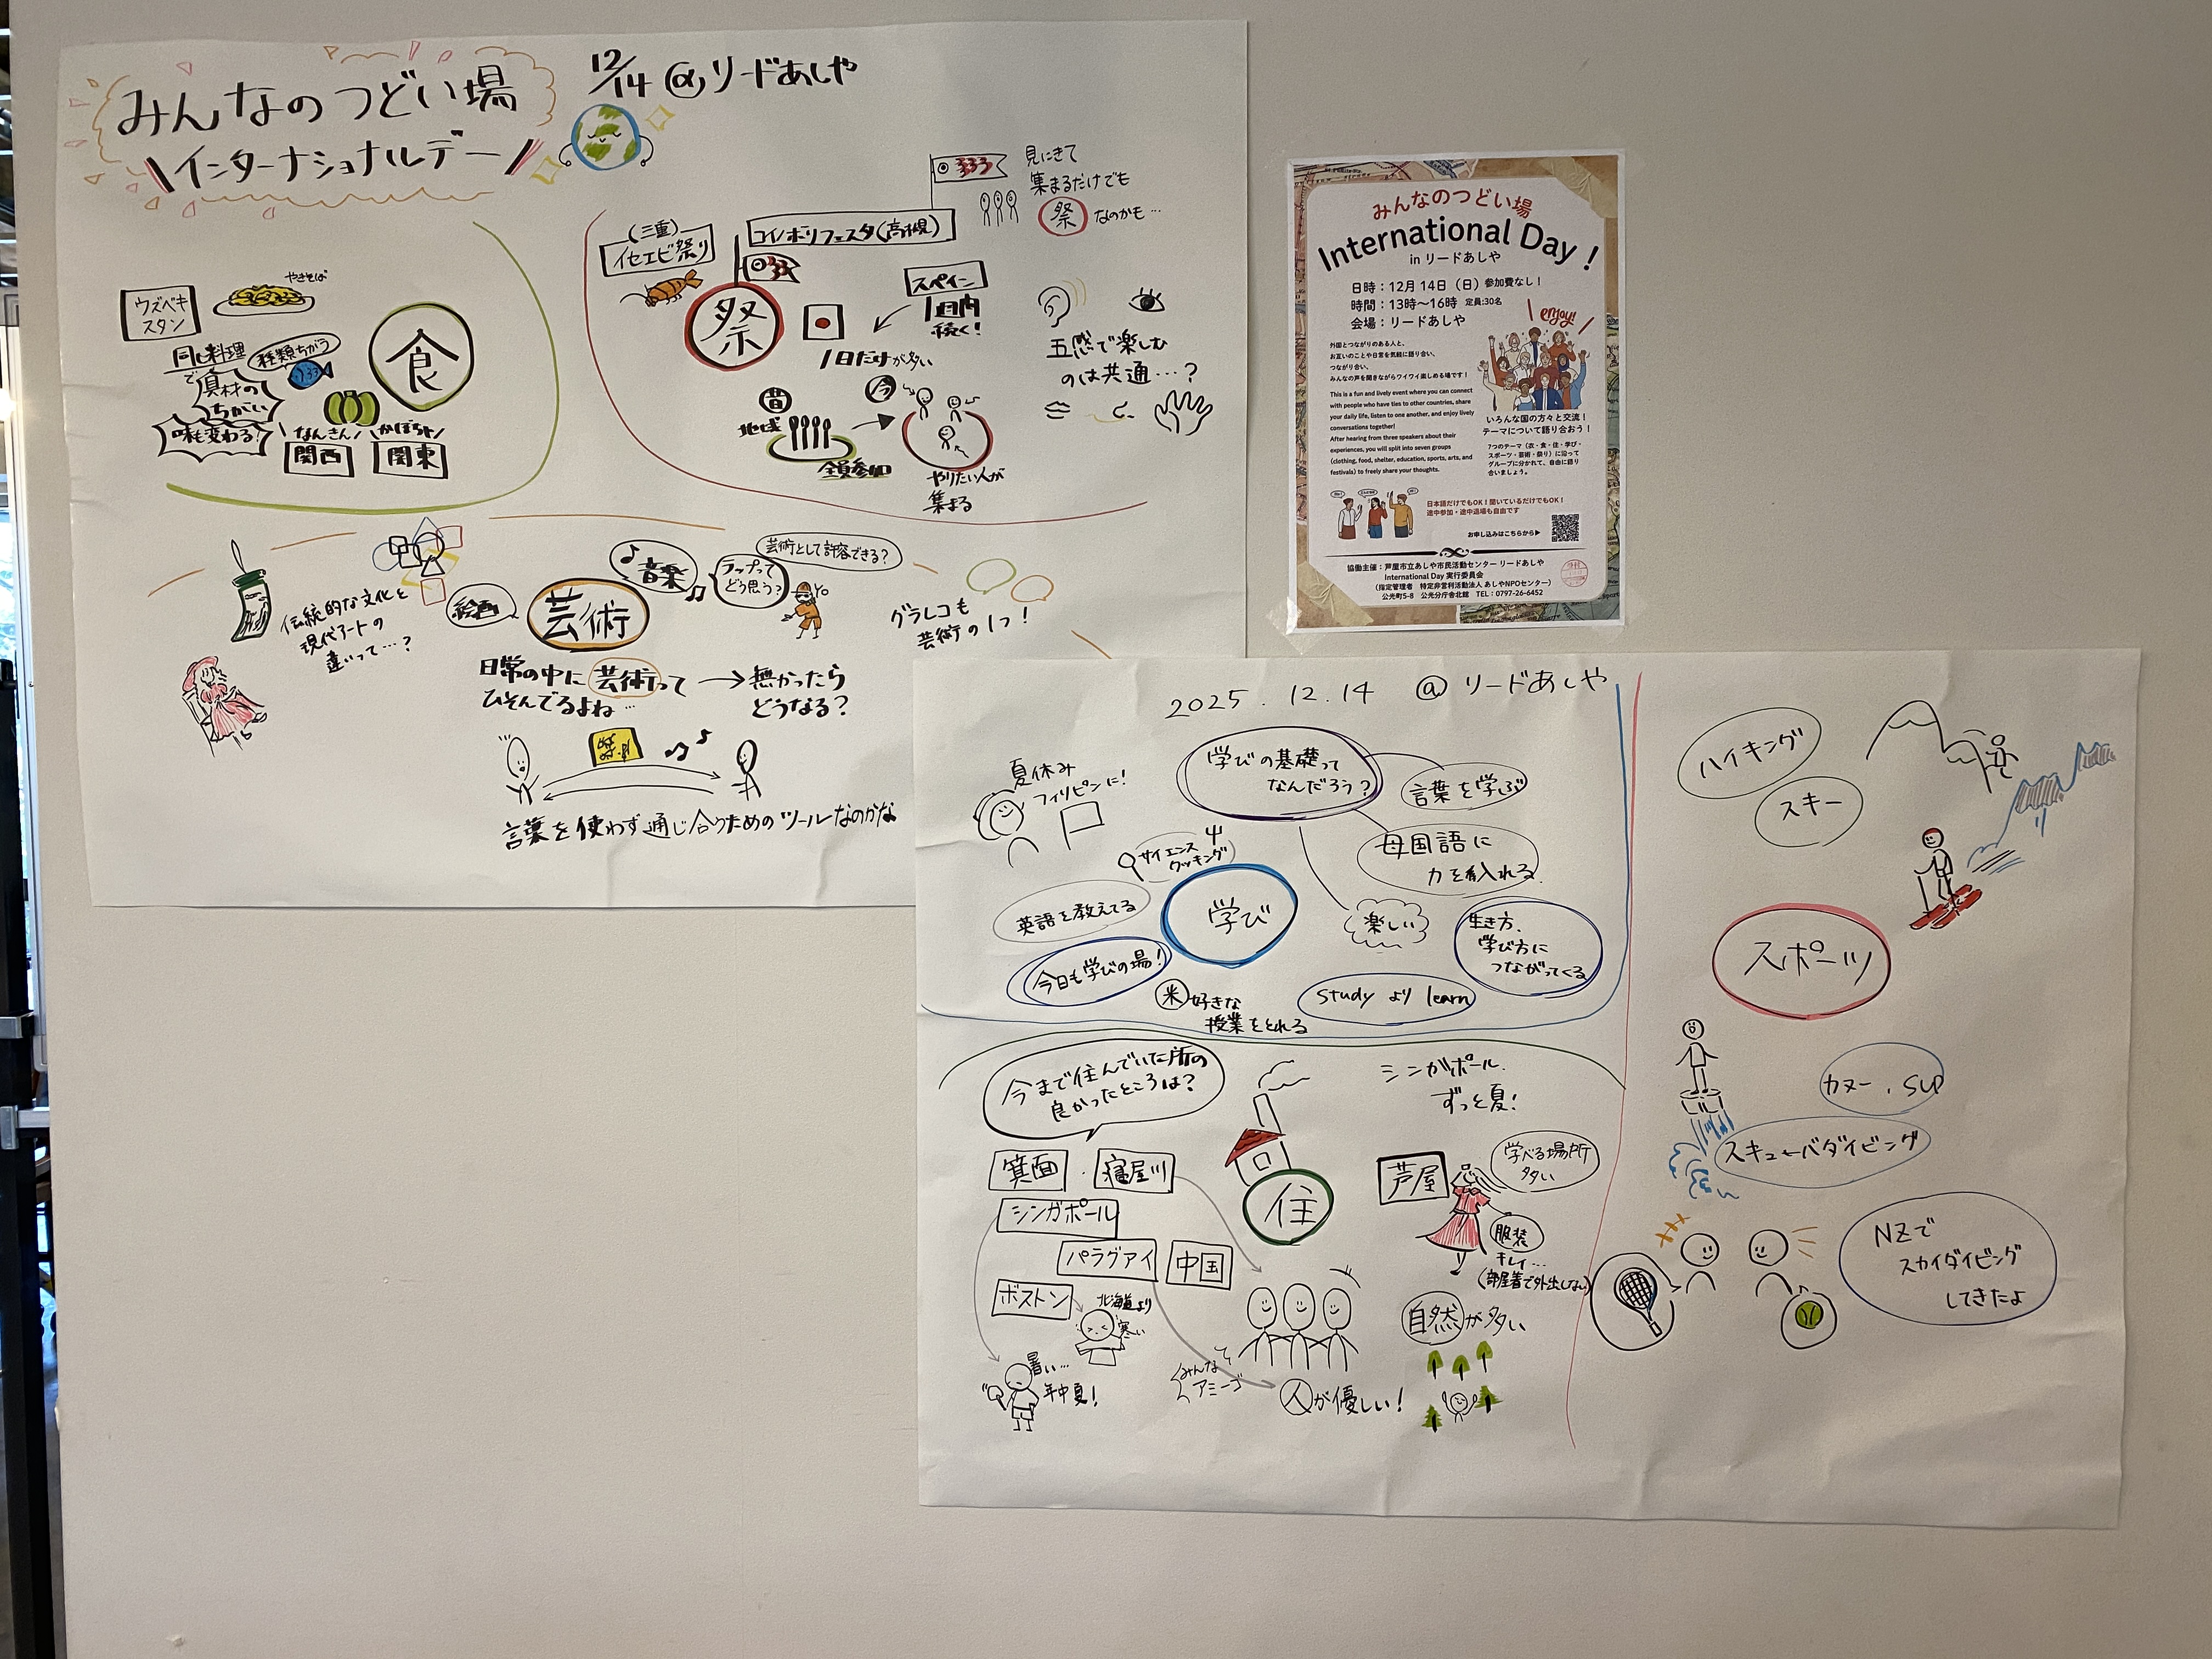 みんなのつどい場
インターナショナルデー
12/14 @リードあしや
ウズベキ
スタン
やきそば
同じ料理
で
具材の
ちがい
味も変わる!
種類ちがう
食
なんきん
関西
かぼちゃ
関東
(三重)
イセエビ祭り
コイノボリフェスタ(高槻)
祭
見にきて
集まるだけでも
祭 なのかも…
スペイン
続く!
1日だけが多い
昔
地域
全員参加
今
やりたい人が
集まる
五感で楽しむ
のは共通…?
伝統的な文化と
現代アートの
違いって…?
絵画
芸術
音楽
ラップって
どう思う?
芸術として許容できる?
Yo
グラレコも
芸術の1つ!
日常の中に芸術って
ひそんでるよね…
無かったら
どうなる?
言葉を使わず通じ合うためのツールなのかな
みんなのつどい場
International Day !
in リードあしや
日時:12月 14日(日)参加費なし!
時間:13時〜16時 定員:30名
会場:リードあしや
enjoy!
外国とつながりのある人と、
お互いのことや日常を気軽に語り合い、
つながり合い、
みんなの声を聞きながらワイワイ楽しめる場です!
This is a fun and lively event where you can connect
with people who have ties to other countries, share
your daily life, listen to one another, and enjoy lively
conversations together!
After hearing from three speakers about their
experiences, you will split into seven groups
(clothing, food, shelter, education, sports, arts, and
festivals) to freely share your thoughts.
いろんな国の方々と交流!
テーマについて語り合おう!
7つのテーマ(衣・食・住・学び・
スポーツ・芸術・祭り)に沿って
グループに分かれて、自由に語り
合いましょう。
日本語だけでもOK!聞いているだけでもOK!
途中参加・途中退場も自由です
お申し込みはこちらから▶
協働主催:芦屋市立あしや市民活動センター リードあしや
International Day 実行委員会
(指定管理者 特定非営利活動法人 あしやNPOセンター)
公光町5-8 公光分庁舎北館 TEL:0797-26-6452
2025.12.14 @リードあしや
夏休み
フィリピンに!
学びの基礎って
なんだろう?
言葉を学ぶ
母国語に
力を入れる
サイエンス
クッキング
英語を教えてる
学び
楽しい
生き方、
学び方に
つながってくる
今日も学びの場!
米 好きな
授業をとれる
study より learn
今まで住んでいた所の
良かったところは?
シンガポール
ずっと夏!
箕面
寝屋川
シンガポール
パラグアイ
中国
ボストン
北海道より
寒い
暑い…
年中夏!
住
みんな
アミーゴ
人が優しい!
芦屋
学べる場所
多い
服装
キレイ…
(部屋着で外出しない)
自然が多い
ハイキング
スキー
スポーツ
カヌー、SUP
スキューバダイビング
NZで
スカイダイビング
してきたよ